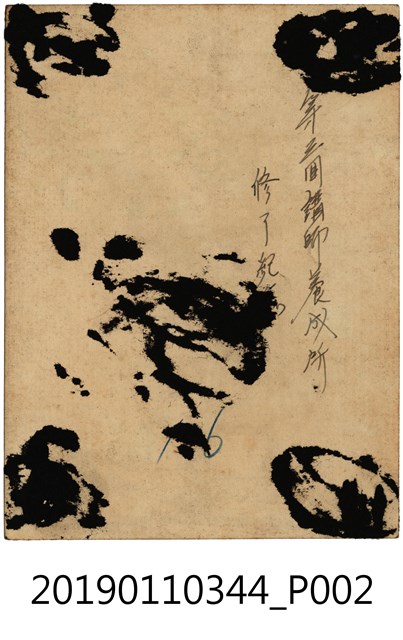 第三回講師養成所
修了紀念
16
20190110344_P002